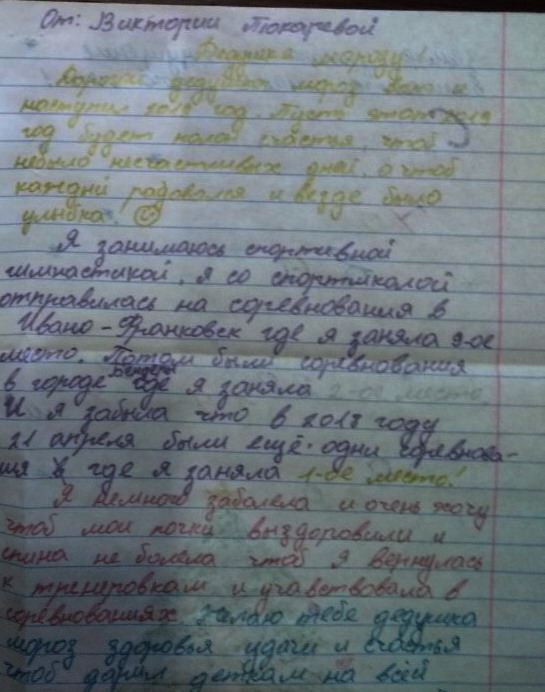 От: Виктории Токаревой
Дедушке морозу!
Дорогой дедушка мороз вот и
наступил 2019 год. Пусть этот 2019
год будет полон счастья, чтоб
небыло несчастливых дней, а чтоб
каждый радовался и везде была
улыбка
Я занимаюсь спортивной
гимнастикой, я со спортшколой
отправилась на соревнования в
Ивано-Франковск где я заняла 9-ое
место. Потом были соревнования
в городе Бендеры где я заняла 2-ое место
И я забыла что в 2018 году
21 апреля были ещё одни соревнова-
ия где я заняла 1-ое место!
Я немного заболела и очень хочу
чтоб мои почки выздоровили и
спина не болела чтоб я вернулась
к тренеровкам и учавствовала в
соревнованиях. Желаю тебе дедушка
мороз здоровья удачи и счастья
чтоб дарил деткам на всей